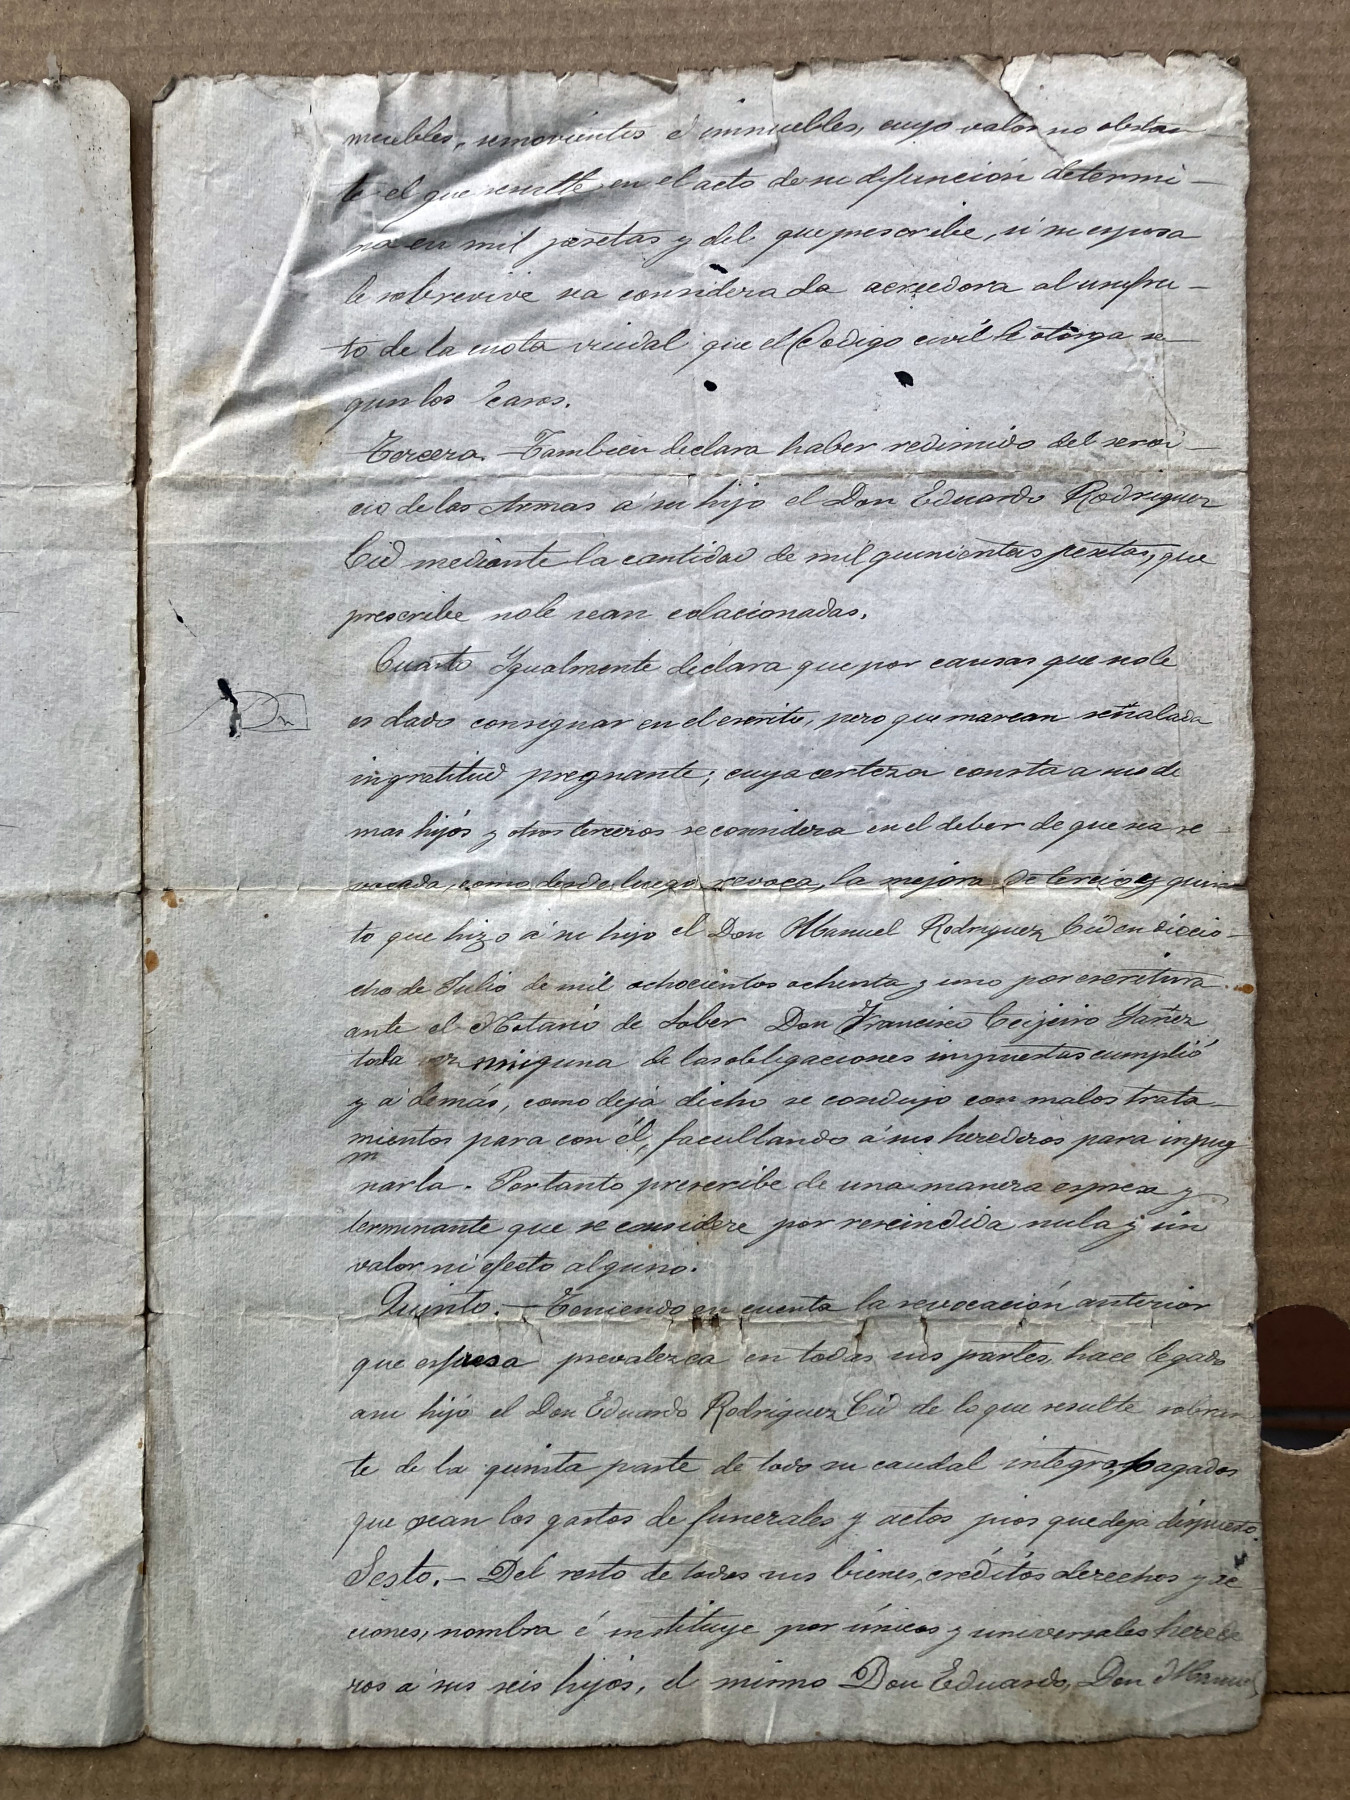 muebles, semovientes é inmuebles, cuyo valor no obstan
te el que resulte en el acto de su defunción determi-
na en mil pesetas y del que prescribe, si su esposa
le sobrevive sea considerada acreedora al usufru-
to de la cuota viudal que el Codigo civil le otorga se-
gun los casos.
Tercera. - También declara haber redimido del servi-
cio de las Armas á su hijo el Don Eduardo Rodriguez
Cid mediante la cantidad de mil quinientas pesetas, que
prescribe no le sean colacionadas.
Cuarto Ygualmente declara que por causas que no le
es dado consignar en el escrito, pero que marcan señalada
ingratitud pregnante; cuya certeza consta a sus de
mas hijos y otros terceros se considera en el deber de que sea re-
vocada, como desde luego revoca, la mejora de tercio y quin
to que hizo á su hijo el Don Manuel Rodriguez Cid en diecio-
cho de Julio de mil ochocientos ochenta y uno por escritura
ante el Notario de Sober Don Francisco Ceijeiro Yañez
toda vez ninguna de las obligaciones impuestas cumplió
y á demás, como deja dicho se condujo con malos trata-
mientos para con él, facultando á sus herederos para inpug
narla. Portanto prescribe de una manera espresa y
terminante que se considere por rescindida nula y sin
valor ni efecto alguno.
Quinto. - Teniendo en cuenta la revocación anterior
que espresa prevalezca en todas sus partes, hace legado
a su hijo el Don Eduardo Rodriguez Cid de lo que resulte sobran
te de la quinta parte de todo su caudal integro, pagados
que sean los gastos de funerales y actos pios que deja dispuesto.
Sesto. - Del resto de todos sus bienes, créditos derechos y ac
ciones, nombra é instituye por únicos y universales herede
ros á sus seis hijos, el mismo Don Eduardo, Don Manuel